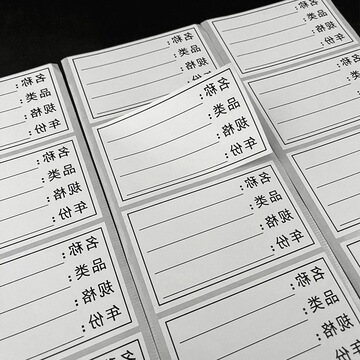 名称：
品类：
规格：
年份：
名称：
品类：
规格：
年份：
名称：
品类：
规格：
年份：
名称：
品类：
规格：
名称：
品类：
规格：
年份：
名称：
品类：
规格：
年份：
名称：
品类：
规格：
年份：
名称：
品类：
规格：
年份：